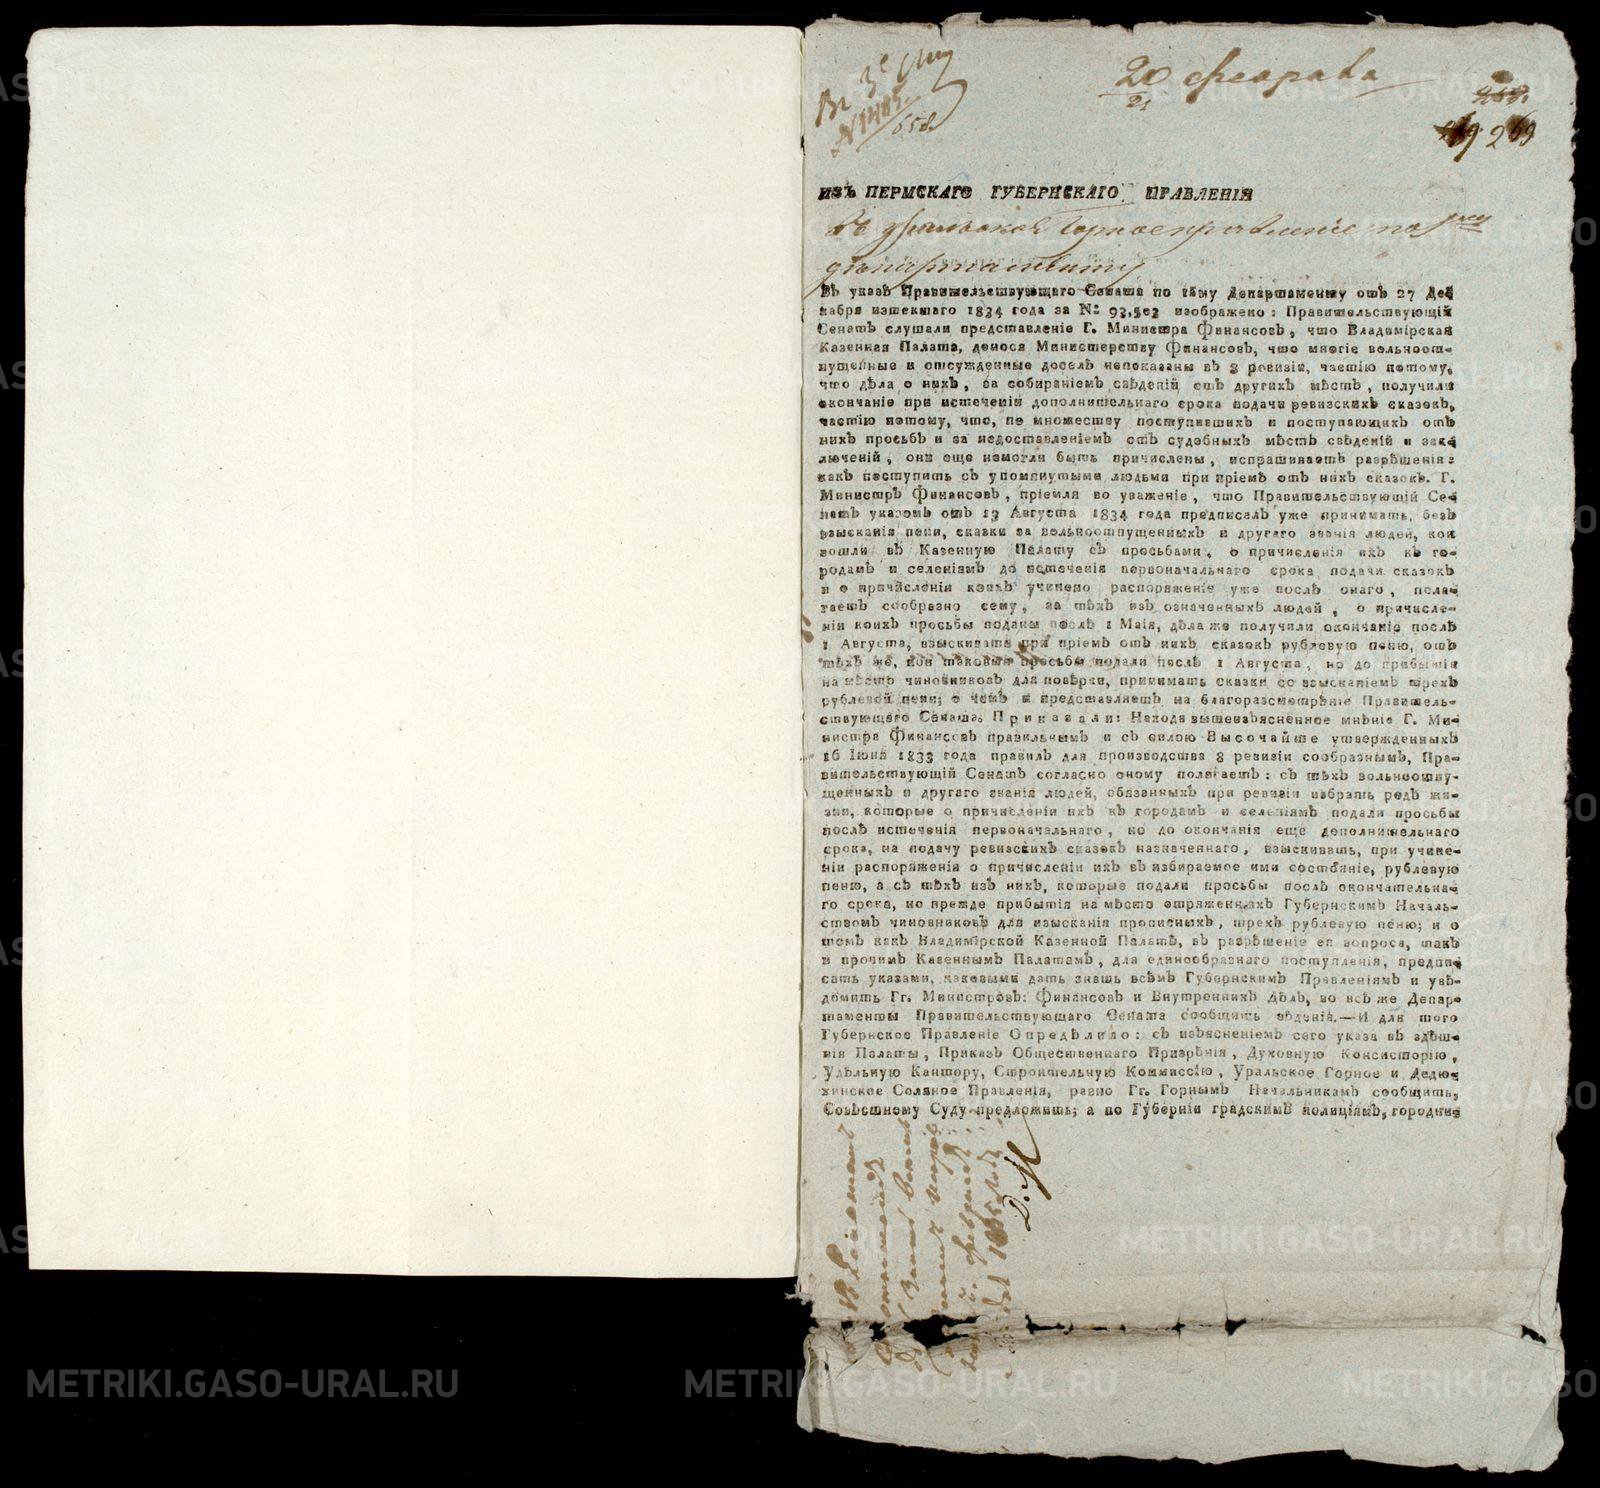 20 февраля
21
Въ 3е
N 1485.
658.
268.
269
ИЗЪ ПЕРМСКАГО ГУБЕРНСКАГО ПРАВЛЕНІЯ
Въ Уральское Горное правленіе по
департаменту
Въ указѣ Правительствующаго Сената по 1му Департаменту отъ 27 Де-
кабря истекшаго 1834 года за № 93,502 изображено: Правительствующій
Сенатъ слушали представленіе Г. Министра Финансовъ, что Владимірская
Казенная Палата, донося Министерству Финансовъ, что многіе вольноот-
пущенные и отсужденные доселѣ непоказаны въ 8 ревизіи, частію потому,
что дѣла о нихъ, за собираніемъ свѣденій отъ другихъ мѣстъ, получили
окончаніе при истеченіи дополнительнаго срока подачи ревизскихъ сказокъ,
частію потому, что, по множеству поступившихъ и поступающихъ отъ
нихъ просьбъ и за недоставленіемъ отъ судебныхъ мѣстъ свѣденій и зак-
люченій, они еще немогли быть причислены, испрашиваетъ разрѣшенія:
какъ поступить съ упомянутыми людьми при пріемѣ отъ нихъ сказокъ. Г.
Министръ Финансовъ, пріемля во уваженіе, что Правительствующій Се-
натъ указомъ отъ 13 Августа 1834 года предписалъ уже принимать, безъ
взысканія пени, сказки за вольноотпущенныхъ и другаго званія людей, кои
вошли въ Казенную Палату съ просьбами, о причисленія ихъ къ го-
родамъ и селеніямъ до истеченія первоначальнаго срока подачи сказокъ
и о причисленіи коихъ учинено распоряженіе уже послѣ онаго, пола-
гаетъ сообразно сему, за тѣхъ изъ означенныхъ людей, о причисле-
ніи коихъ просьбы поданы послѣ 1 Маія, дѣла же получили окончаніе послѣ
1 Августа, взыскивать при пріемѣ отъ нихъ сказокъ рублевую пеню, отъ
тѣхъ же, кои таковыя просьбы подали послѣ 1 Августа, но до прибытія
на мѣстѣ чиновниковъ для повѣрки, принимать сказки со взысканіемъ трехъ
рублевой пени; о чемъ и представляетъ на благоразсмотрѣніе Правитель-
ствующаго Сената. Приказали: Находя вышеизъясненное мнѣніе Г. Ми-
нистра Финансовъ правильнымъ и съ силою Высочайше утвержденныхъ
16 Іюня 1833 года правилъ для производства 8 ревизіи сообразнымъ, Пра-
вительствующій Сенатъ согласно оному полагаетъ: съ тѣхъ вольноотпу-
щенныхъ и другаго званія людей, обязанныхъ при ревизіи избрать родъ жи-
зни, которые о причисленіи ихъ къ городамъ и селеніямъ подали просьбы
послѣ истеченія первоначальнаго, но до окончанія еще дополнительнаго
срока, на подачу ревизскихъ сказокъ назначеннаго, взыскивать, при учине-
ніи распоряженія о причисленіи ихъ въ избираемое ими состояніе, рублевую
пеню, а съ тѣхъ изъ нихъ, которые подали просьбы послѣ окончательна-
го срока, но прежде прибытія на мѣсто отряженныхъ Губернскимъ Началь-
ствомъ чиновниковъ для изысканія прописныхъ, трехъ рублевую пеню; и о
томъ какъ Владимірской Казенной Палатѣ, въ разрѣшеніе ея вопроса, такъ
и прочимъ Казеннымъ Палатамъ, для единообразнаго поступленія, предпи-
сать указами, каковыми дать знать всѣмъ Губернскимъ Правленіямъ и увѣ-
домить Гг. Министровъ: Финансовъ и Внутреннихъ Дѣлъ, во всѣ же Депар-
таменты Правительствующаго Сената сообщить вѣденія.—И для того
Губернское Правленіе Опредѣлило: съ изъясненіемъ сего указа въ здѣш-
нія Палаты, Приказъ Общественнаго Призрѣнія, Духовную Консисторію,
Удѣльную Кантору, Строительную Коммиссію, Уральское Горное и Дедю-
хинское Соляное Правленія, равно Гг. Горнымъ Начальникамъ сообщить,
Совѣстному Суду предложить; а по Губерніи градскимъ полиціямъ, городни-
февраля
1835 года